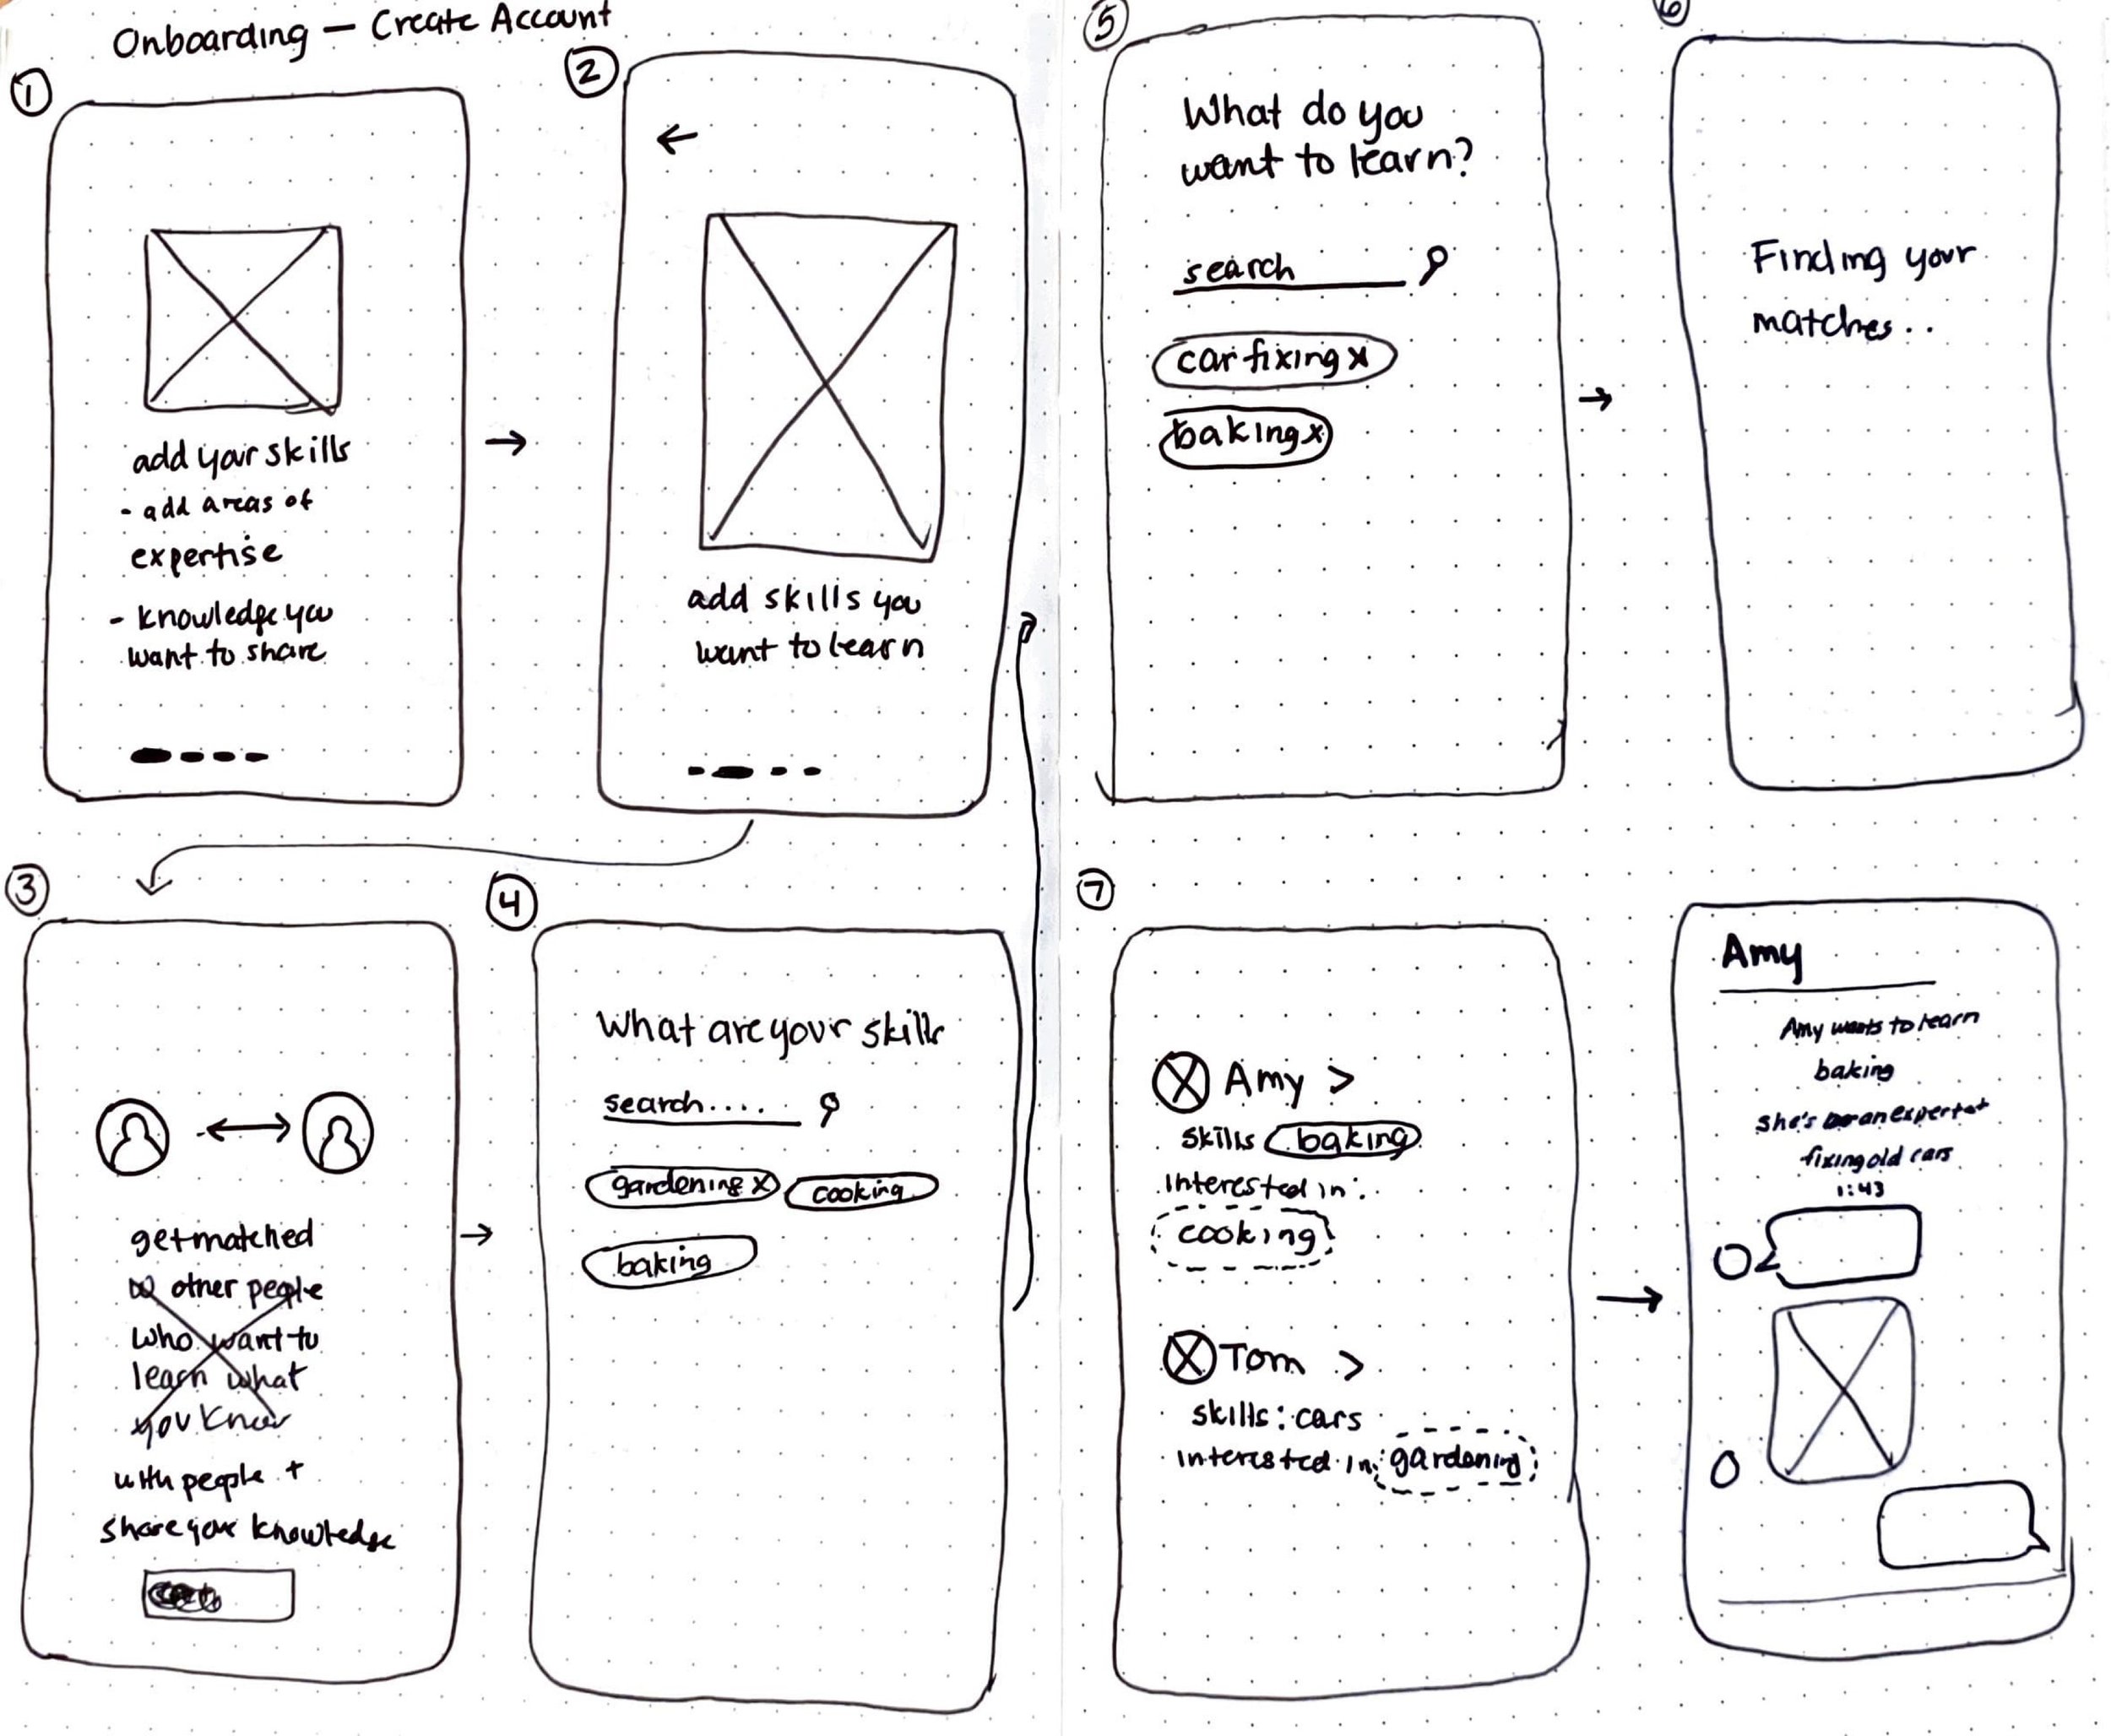 Onboarding — Create Account
1
add your skills
- add areas of
expertise
- knowledge you
want to share
2
←
add skills you
want to learn
3
get matched
w other people
who want to
learn what
you know
with people +
share your knowledge
4
What are your skills
search....
gardening x cooking
baking
5
What do you
want to learn?
search
car fixing x
baking x
6
Finding your
matches..
7
Amy >
skills baking
interested in:
cooking
Tom >
skills: cars
interested in: gardening
Amy
Amy wants to learn
baking
she's an expert at
fixing old cars
1:43